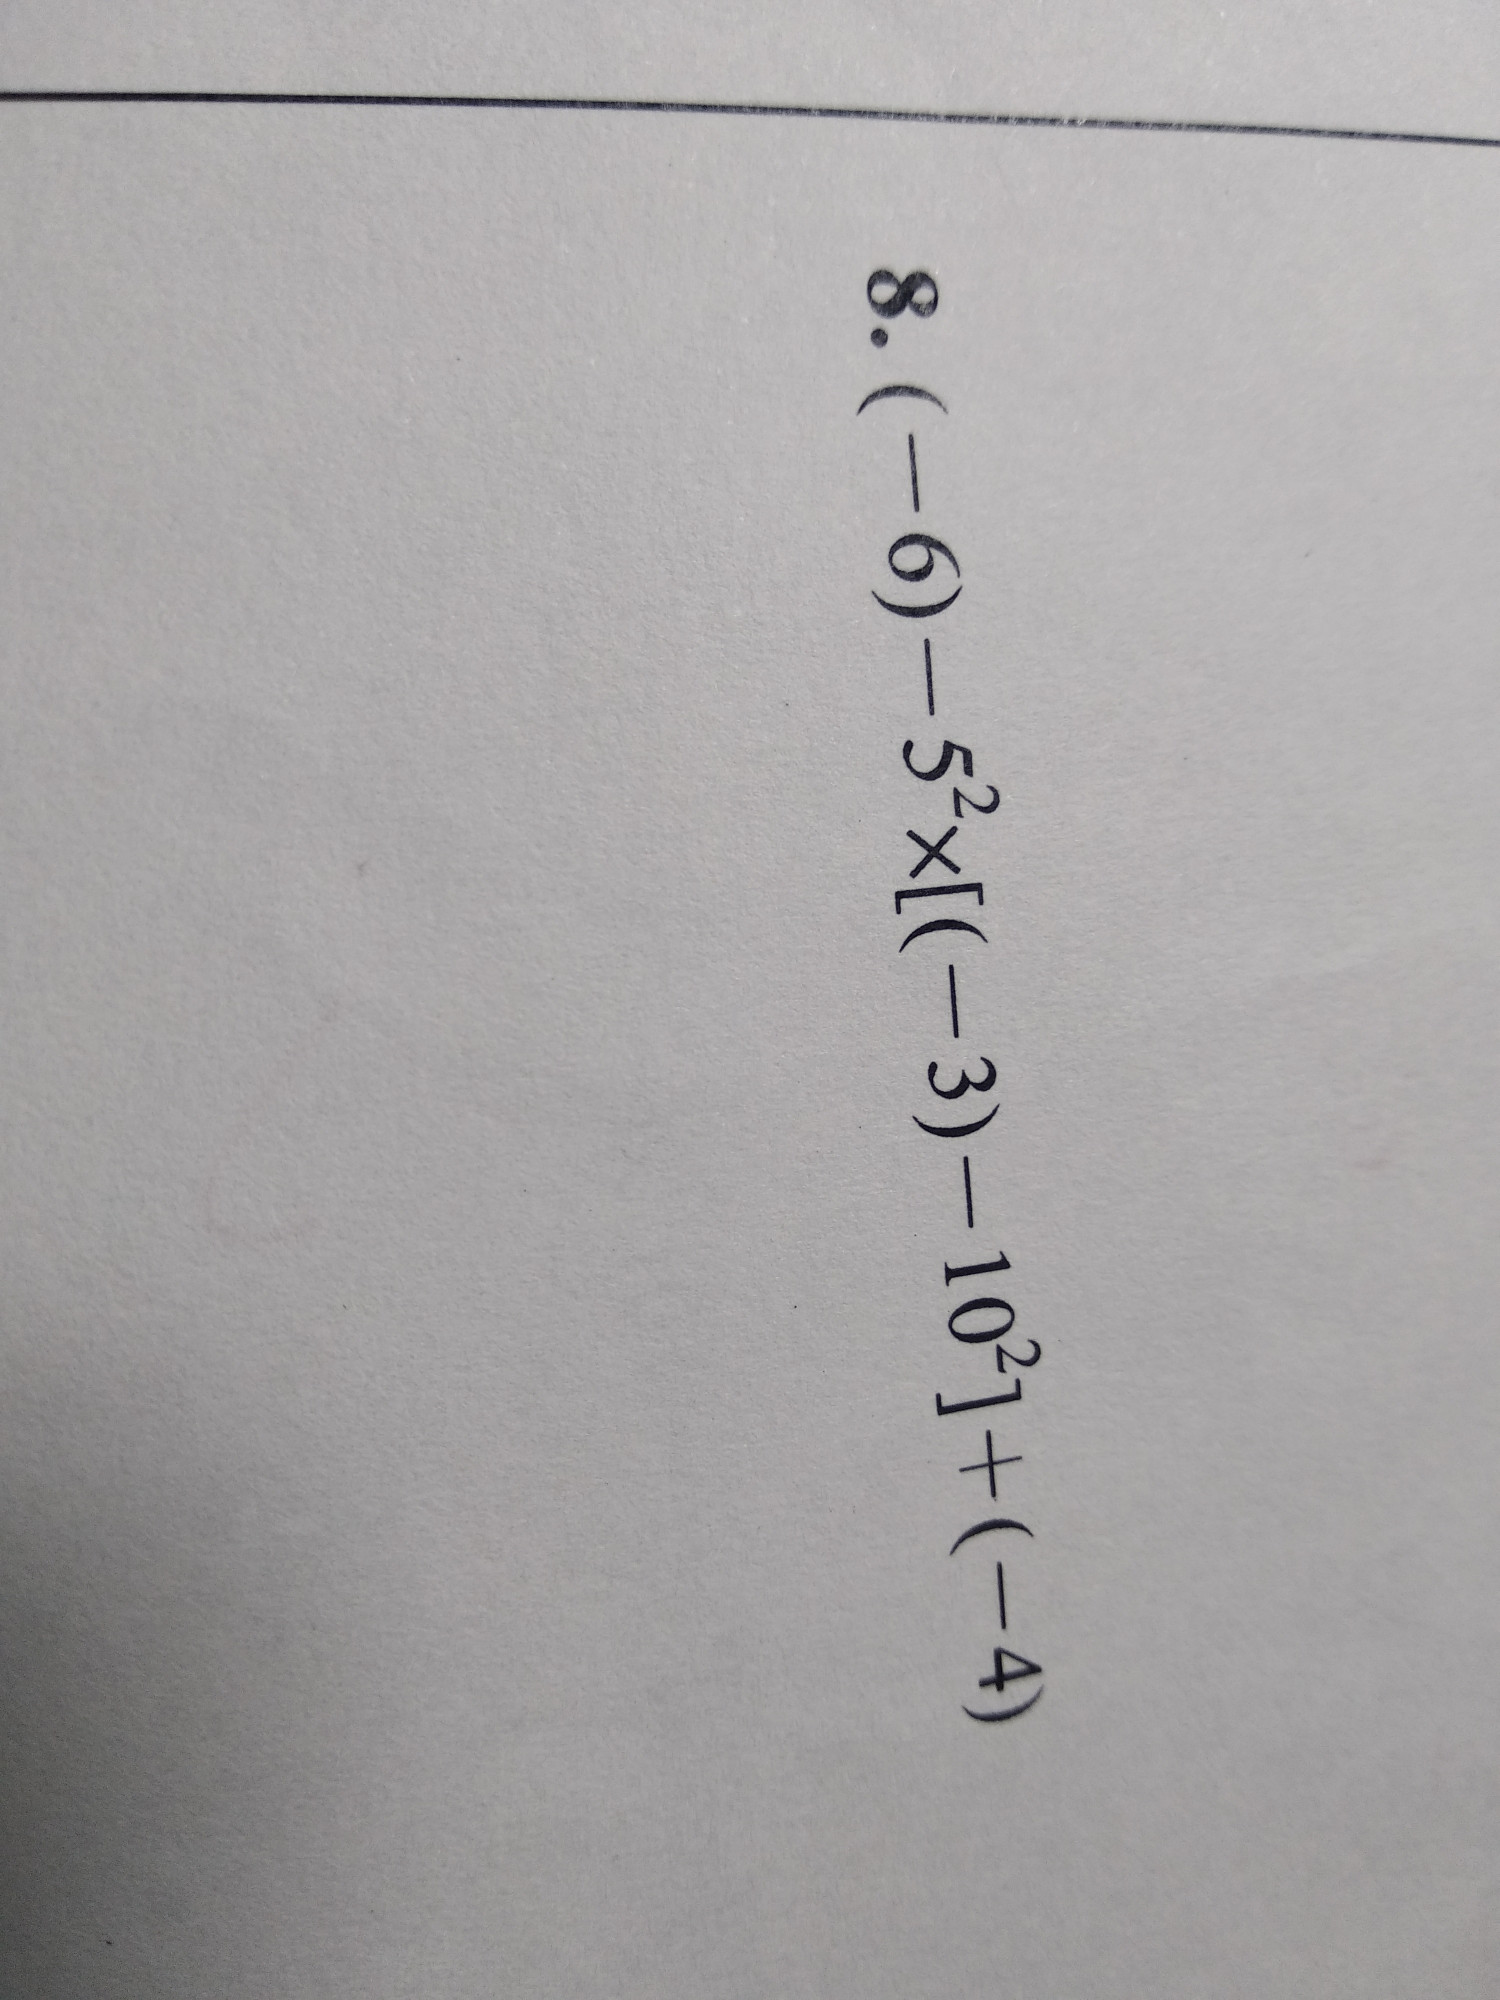 8. (−6)−5²×[(−3)−10²]+(−4)